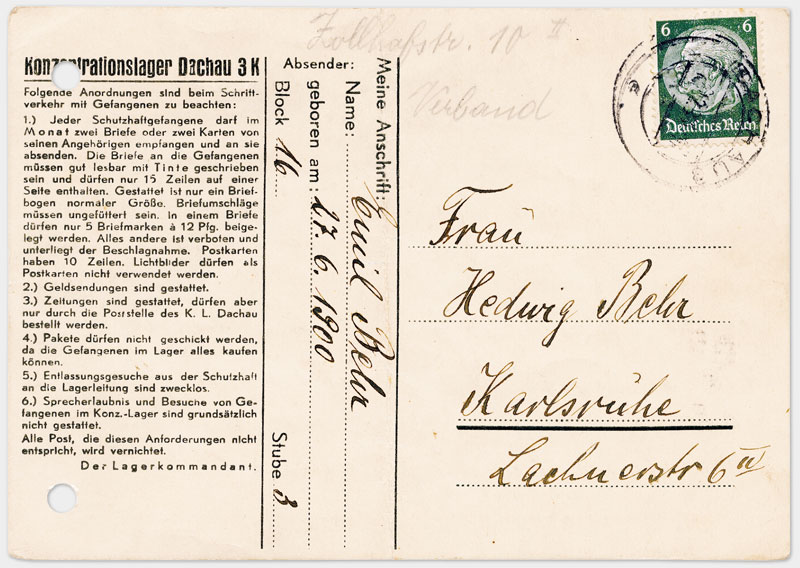 Konzentrationslager Dachau 3 K
Folgende Anordnungen sind beim Schrift-
verkehr mit Gefangenen zu beachten:
1.) Jeder Schutzhaftgefangene darf im
Monat zwei Briefe oder zwei Karten von
seinen Angehörigen empfangen und an sie
absenden. Die Briefe an die Gefangenen
müssen gut lesbar mit Tinte geschrieben
sein und dürfen nur 15 Zeilen auf einer
Seite enthalten. Gestattet ist nur ein Brief-
bogen normaler Größe. Briefumschläge
müssen ungefüttert sein. In einem Briefe
dürfen nur 5 Briefmarken à 12 Pfg. beige-
legt werden. Alles andere ist verboten und
unterliegt der Beschlagnahme. Postkarten
haben 10 Zeilen. Lichtbilder dürfen als
Postkarten nicht verwendet werden.
2.) Geldsendungen sind gestattet.
3.) Zeitungen sind gestattet, dürfen aber
nur durch die Poststelle des K. L. Dachau
bestellt werden.
4.) Pakete dürfen nicht geschickt werden,
da die Gefangenen im Lager alles kaufen
können.
5.) Entlassungsgesuche aus der Schutzhaft
an die Lagerleitung sind zwecklos.
6.) Sprecherlaubnis und Besuche von Ge-
fangenen im Konz.-Lager sind grundsätzlich
nicht gestattet.
Alle Post, die diesen Anforderungen nicht
entspricht, wird vernichtet.
Der Lagerkommandant.
Absender:
Meine Anschrift:
Name: Emil Behr
geboren am: 27. 6. 1900
Block 16 Stube 3
Zollhafstr. 10 II
Verband
6 6
Deutsches Reich
Frau
Hedwig Behr
Karlsruhe
Lachnerstr 6 II